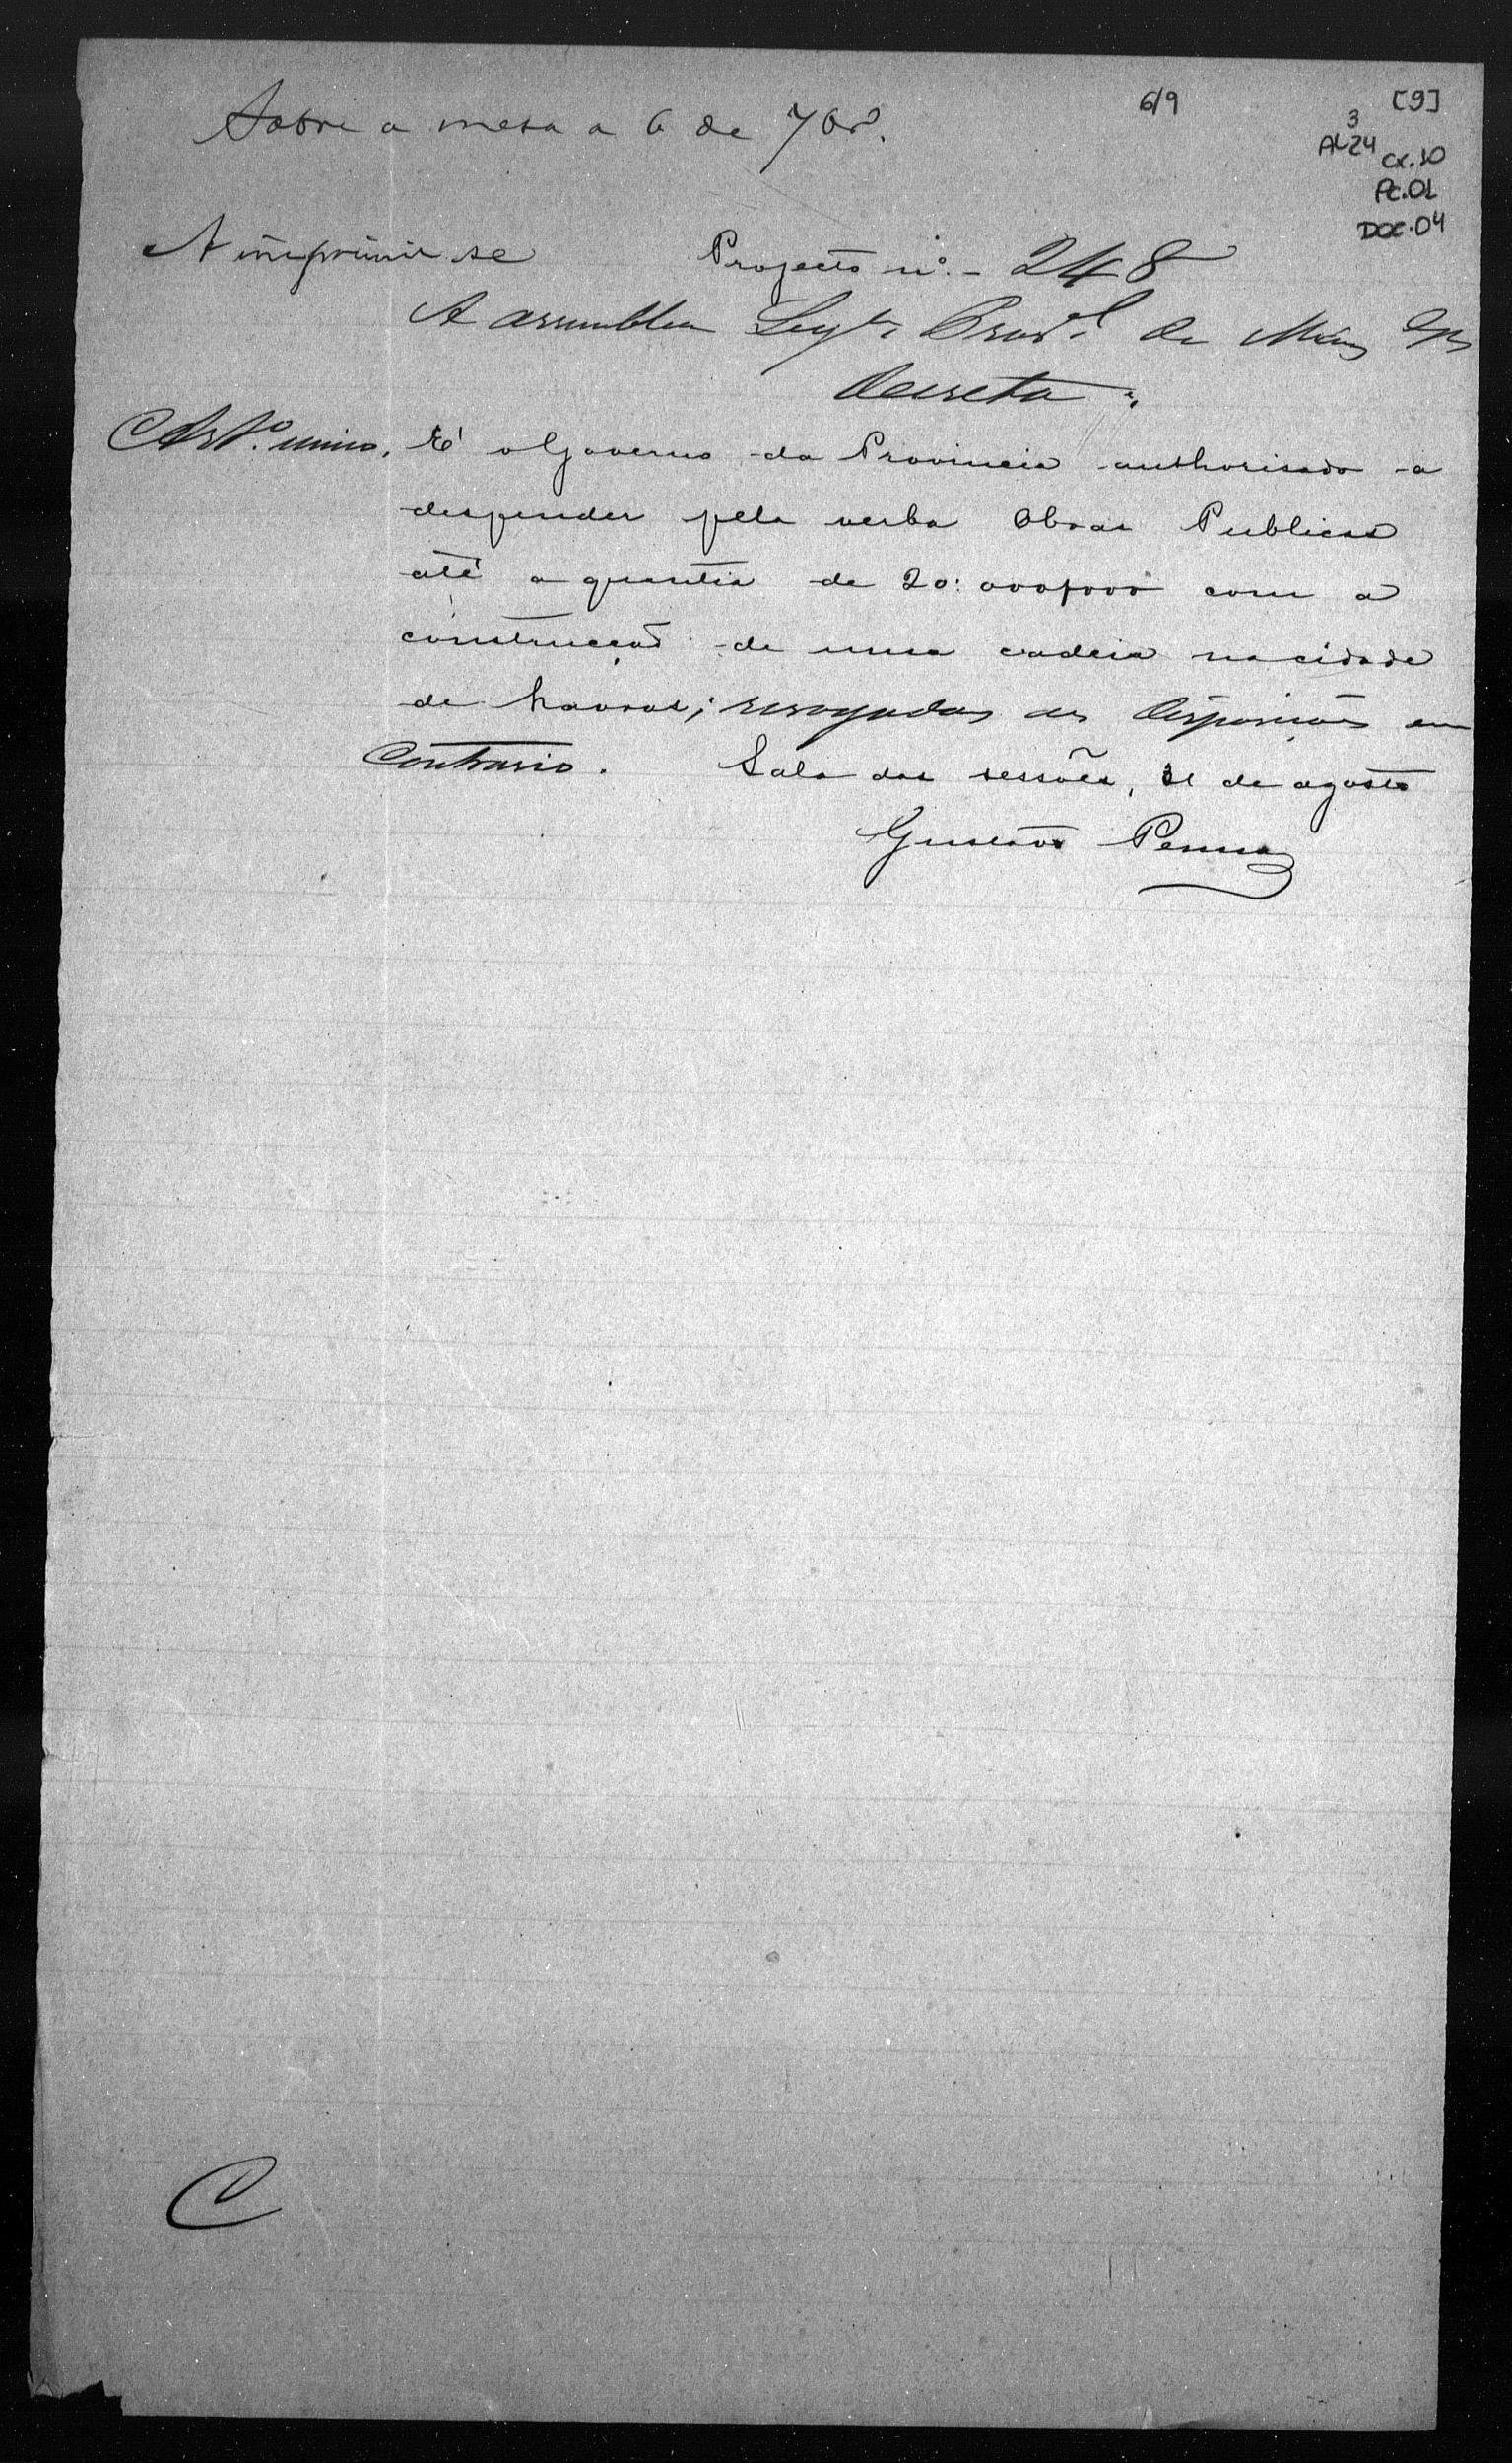 6/9
[9]
Sobre a mesa a 6 de 7br.º
3
AL24 cx.10
Pc.01
DOC.04
A imprimir se
Projecto nº.- 248
A assemblea Legª. Provl de Minas
decreta:
Artº. unico. É o Governo da Provincia authorisado a
despender pela verba Obras Publicas
até a quantia de 20:000$000 com a
construcção de uma cadeia na cidade
de Lavras; revogadas as disposições em
Contrario. Sala das sessões, 31 de agosto
Gustavo Penna
C